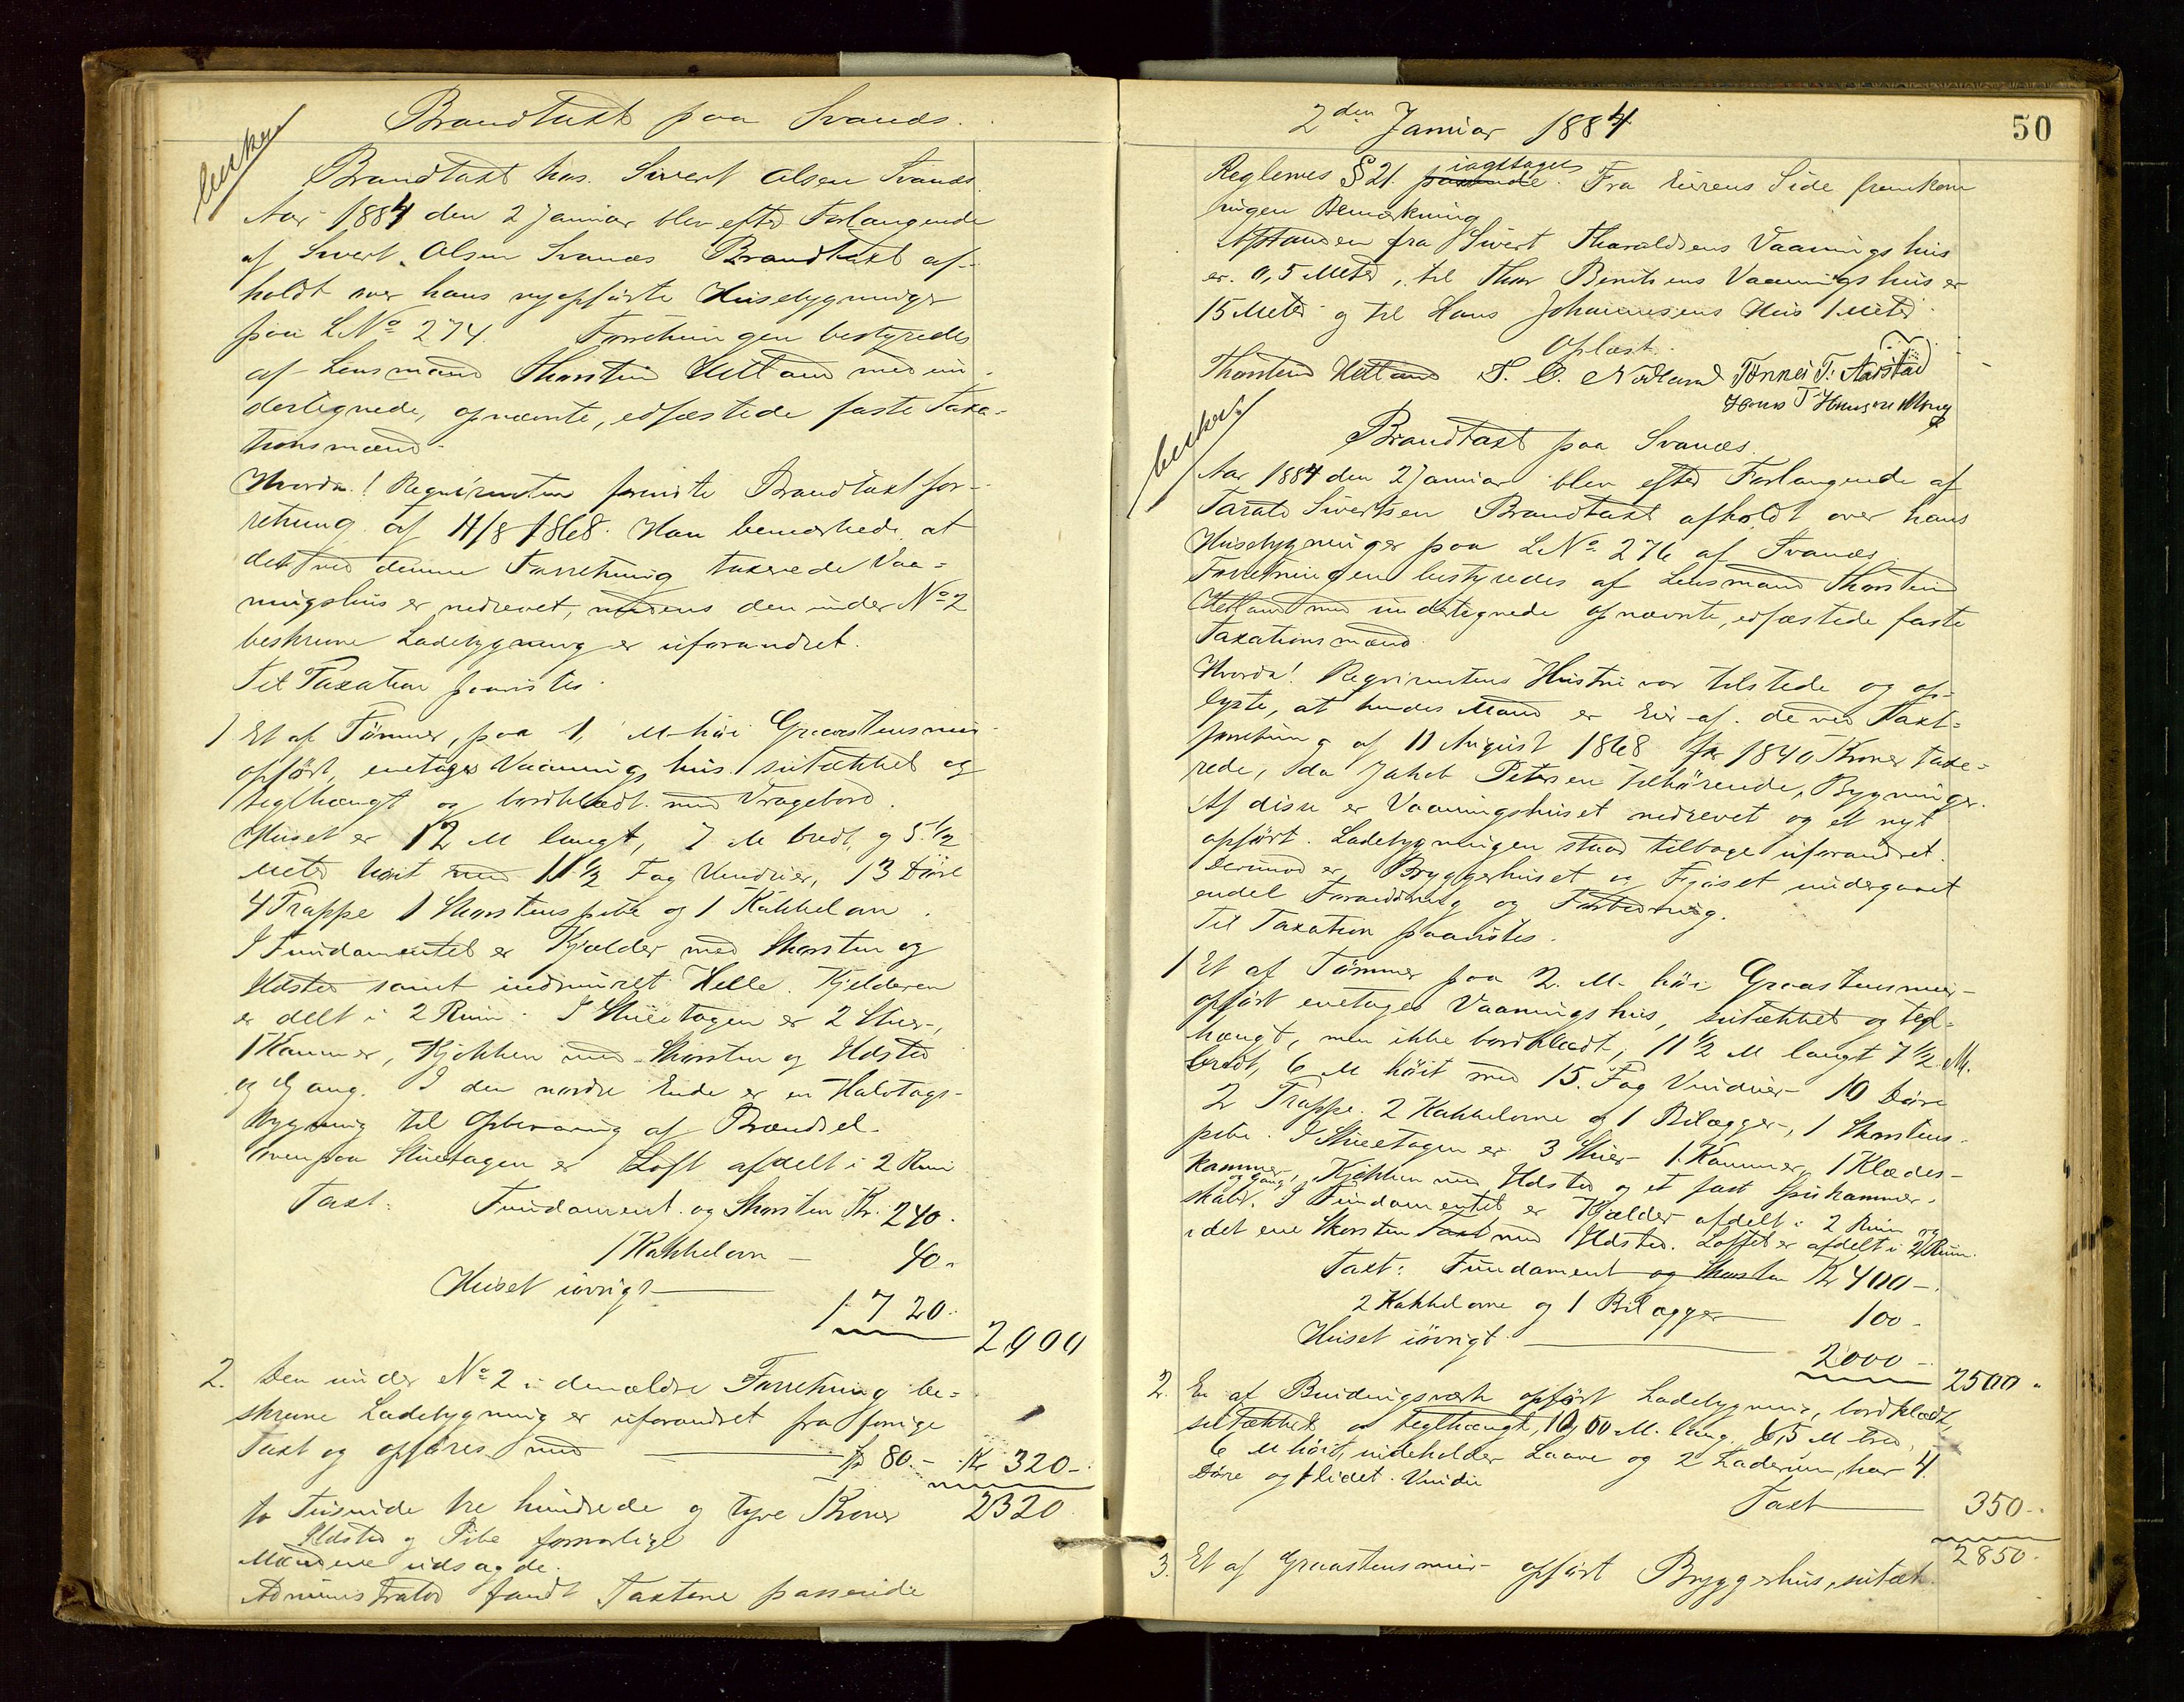 Brandtaxt paa Svanæs.
Brandtaxt hos Sivert Olsen Svanæs.
Aar 1884 den 2 Januar blev efter Forlangende
af Sivert Olsen Svanæs Brandtaxt af-
holdt over hans nyopførte Husebygninger
paa LNo 274. Forretningen bestyredes
af Lensmand Thorstein Hetland med un-
dertegnede, opnævnte, edfæstede faste Taxa-
tionsmænd.
Hvorda! Requirenten fremviste Brandtaxtfor-
retning af 11/8 1868. Han bemærkede at
det ved denne Forretning taxerede Vaa-
ningshus er nedrevet, medens den under No 2
beskrevne Ladebygning er uforandret.
Til Taxation paavistes.
1 Et af Tømmer, paa 1, M høi Graastensmur
opført, enetages Vaaningshus sutækket og
teglhængt og bordklædt med Vragebord.
Huset er 12 M langt, 7 M bredt, og 5 1/2
Meter høit med 11 1/2 Fag Vinduer, 13 Døre
4 Trappe 1 Skorstenspibe og 1 Kakkelovn.
I Fundamentet er Kjælder med Skorsten og
Ildsted samt indmuret Helle. Kjelderen
er delt i 2 Rum. I Stueetagen er 2 Stuer,
1 Kammer, Kjøkken med Skorsten og Ildsted
og Gang. I den nordre Ende er en Halvtags-
bygning til Opbevaring af Brændsel.
Ovenpaa Stueetagen er Loft afdelt i 2 Rum
Taxt: Fundament og Skorsten Kr. 240.
1 Kakkelovn — 40.
Huset iøvrigt — 1720.
2000
2. Den under No 2 i den ældre Forretning be-
skrevne Ladebygning er uforandret fra forrige
Taxt og opføres med — 80.- Kr 320-
to Tusinde tre hundrede og tyve Kroner 2320
Ildsted og Pibe forsvarlige
Mændene udsagde.
Administrator fandt Taxterne passende
2den Januar 1884
50
Reglernes § 21. passende iagttaget. Fra Eierens Side fremkom
ingen Bemærkning
Afstanden fra Sivert Tharaldsens Vaaningshus
er 0,5 Meter, til Thor Berntsens Vaaningshus er
15 Meter og til Hans Johannesens Hus 1 Meter.
Oplæst.
Thorstein Hetland S. O. Nodland Tønnes T. Aarstad
Brandtaxt paa Svanæs.
Aar 1884 den 2 Januar blev efter Forlangende af
Tarald Sivertsen Brandtaxt afholdt over hans
Husebygninger paa LNo 276 af Svanæs.
Forretningen bestyredes af Lensmand Thorstein
Hetland med undertegnede opnævnte, edfæstede faste
Taxationsmænd.
Hvorda! Requirentens Hustru var tilstede og op-
lyste, at hendes Mand er Eier af de ved Taxt-
forretning af 11 August 1868 for 1840 Kroner taxe-
rede, da Jakob Petersen tilhørende, Bygninger.
Af disse er Vaaningshuset nedrevet og et nyt
opført. Ladebygningen staar tilbage uforandret.
Derimod er Bryggerhuset og Fjøset undergaaet
endel Forandring og Forbedring.
Til Taxation paavistes.
1 Et af Tømmer paa 2. M. høi Graastensmur
opført enetages Vaaningshus, sutækket og tegl-
hængt, men ikke bordklædt, 11 1/2 M langt 7 1/2 M.
bredt, 6 M høit med 15. Fag Vinduer 10 Døre
2 Trappe. 2 Kakkelovne og 1 Bilægger, 1 Skorstens-
pibe. I Stueetagen er 3 Stuer 1 Kammer, 1 Klædes-
kammer, og Gang, Kjøkken med Ildsted og et fast Spisekammer-
skab. I Fundamentet er Kjælder afdelt i 2 Rum og
i det ene Skorsten Taxt med 1 Ildsted. Loftet er afdelt i 2 Rum.
Taxt: Fundament og Skorsten Kr 400-.
2 Kakkelovne og 1 Bilægger — 100-
Huset iøvrigt — 2000-
2500
2. En af Bindingsværk opført Ladebygning, bordklædt,
sutækket og teglhængt, 10,00 M. lang, 6,5 M bred,
6 M høit, indeholder Laave og 2 Laderum, har 4
Døre og 1 lidet Vindu
Taxt — 350-
2850-
3. Et af Graastensmur opført Bryggerhus, sutæk-